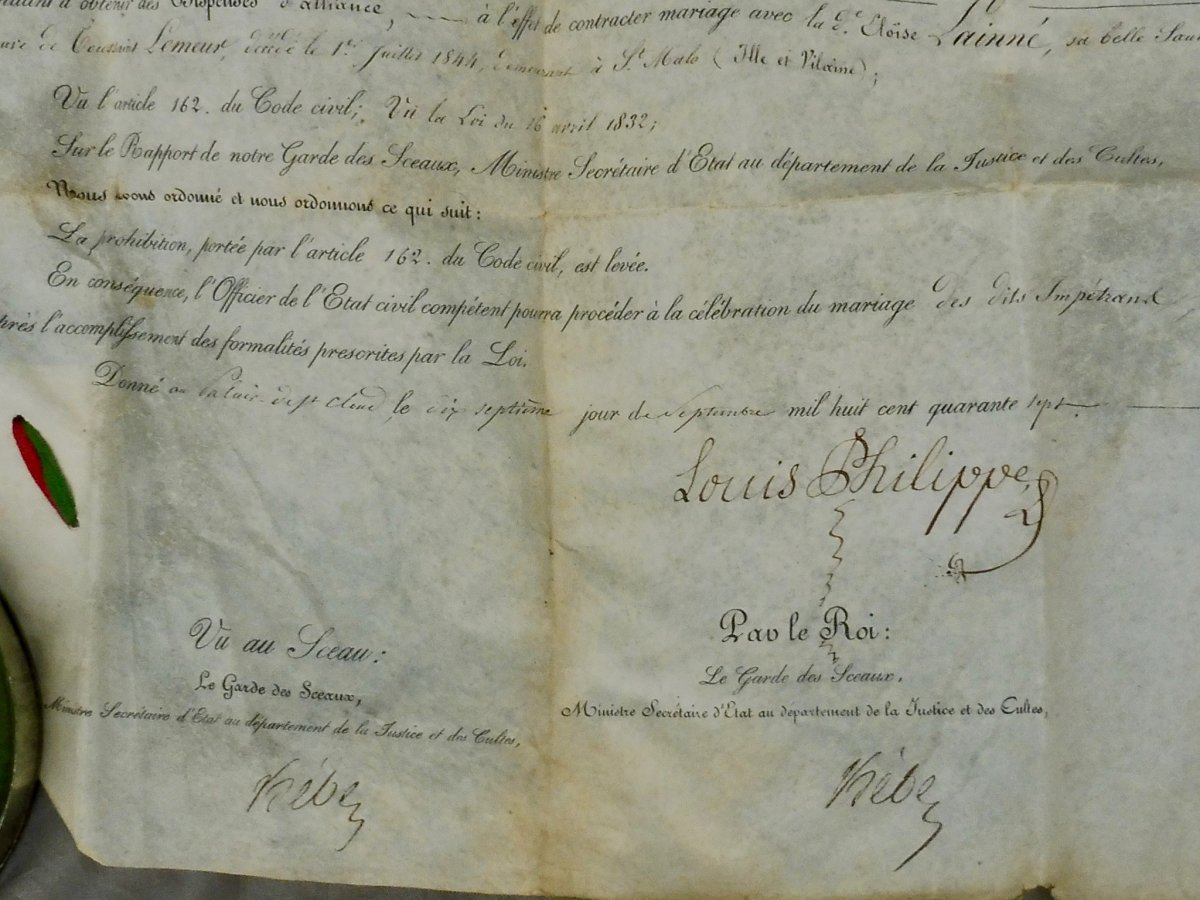 d'obtenir des Dispenses d'alliance, à l'effet de contracter mariage avec la De. Eloïse Lainné, sa belle Sœur
de Toussaint Lemeur, décédé le 1er. Juillet 1844, demeurant à St. Malo (Ille et Vilaine);
Vu l'article 162. du Code civil; Vu la Loi du 16 avril 1832;
Sur le Rapport de notre Garde des Sceaux, Ministre Secrétaire d'Etat au département de la Justice et des Cultes,
Nous avons ordonné et nous ordonnons ce qui suit:
La prohibition, portée par l'article 162. du Code civil, est levée.
En conséquence, l'Officier de l'Etat civil compétent pourra procéder à la célébration du mariage des dits Impétrans
l'accomplissement des formalités prescrites par la Loi.
Donné au Palais de St Cloud le dix septième jour de Septembre mil huit cent quarante sept.
Louis Philippe
Vu au Sceau:
Le Garde des Sceaux,
Ministre Secrétaire d'Etat au département de la Justice et des Cultes,
Hébert
Par le Roi:
Le Garde des Sceaux,
Ministre Secrétaire d'Etat au département de la Justice et des Cultes,
Hébert